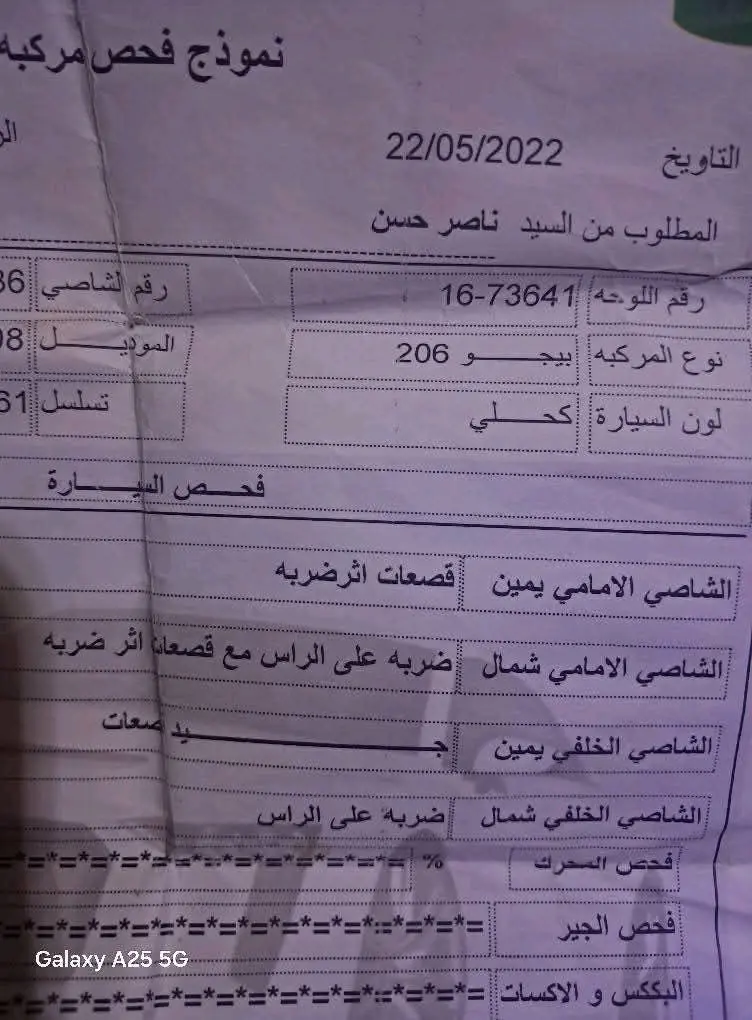 نموذج فحص مركبه
التاريخ 22/05/2022
المطلوب من السيد ناصر حسن
رقم اللوحه 16-73641 رقم لشاصي 36
نوع المركبه بيجـــو 206 الموديـــل 98
لون السيارة كحـــلي تسلسل 61
فحـــص السيـــارة
الشاصي الامامي يمين قصعات اثرضربه
الشاصي الامامي شمال ضربه على الراس مع قصعات اثر ضربه
الشاصي الخلفي يمين جـــــيد صعات
الشاصي الخلفي شمال ضربه على الراس
فحص المحرك % =*=*=*=*=*=*=*=*=*=*=*=*=*=
فحص الجير =*=*=*=*=*=*=*=*=*=*=*=*=*=*=*=*=
البككس و الاكسات =*=*=*=*=*=*=*=*=*=*=*=*=*=*=*=*=
Galaxy A25 5G